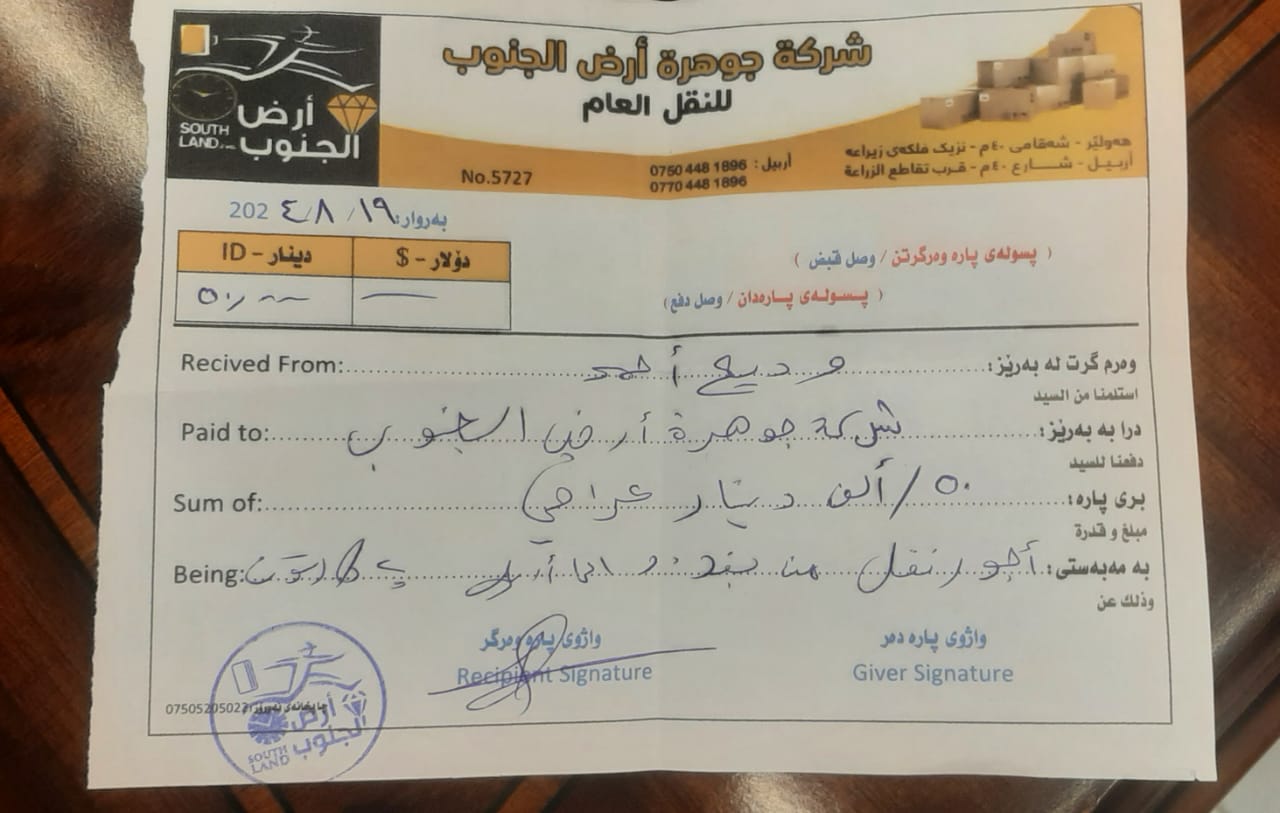 شركة جوهرة أرض الجنوب
للنقل العام
أرض الجنوب
SOUTH LAND
هەولێر - شەقامی ٤٠م - نزیک فلکەی زیراعە
أربيل - شارع ٤٠م - قرب تقاطع الزراعة
أربيل : 0750 448 1896
0770 448 1896
No.5727
بەروار: ١٩/ ٨/ ٤ 202
( پسولەی پارە وەرگرتن / وصل قبض )
( پسولەی پارەدان / وصل دفع)
دۆلار - $ دینار - ID
— ٥٠,
وەرم گرت لە بەڕێز: وديع أحمد Recived From:
استلمنا من السيد
درا بە بەڕێز: شركة جوهرة أرض الجنوب Paid to:
دفعنا للسيد
بری پارە: ٥٠/ ألف دينار عراقي Sum of:
مبلغ و قدرة
بە مەبەستی: أجور نقل من بغداد الى أربيل كارتون Being:
وذلك عن
واژوی پارە دەر واژوی پارە وەرگر
Giver Signature Recipient Signature
چاپخانەی 07505205022
أرض الجنوب
SOUTH LAND